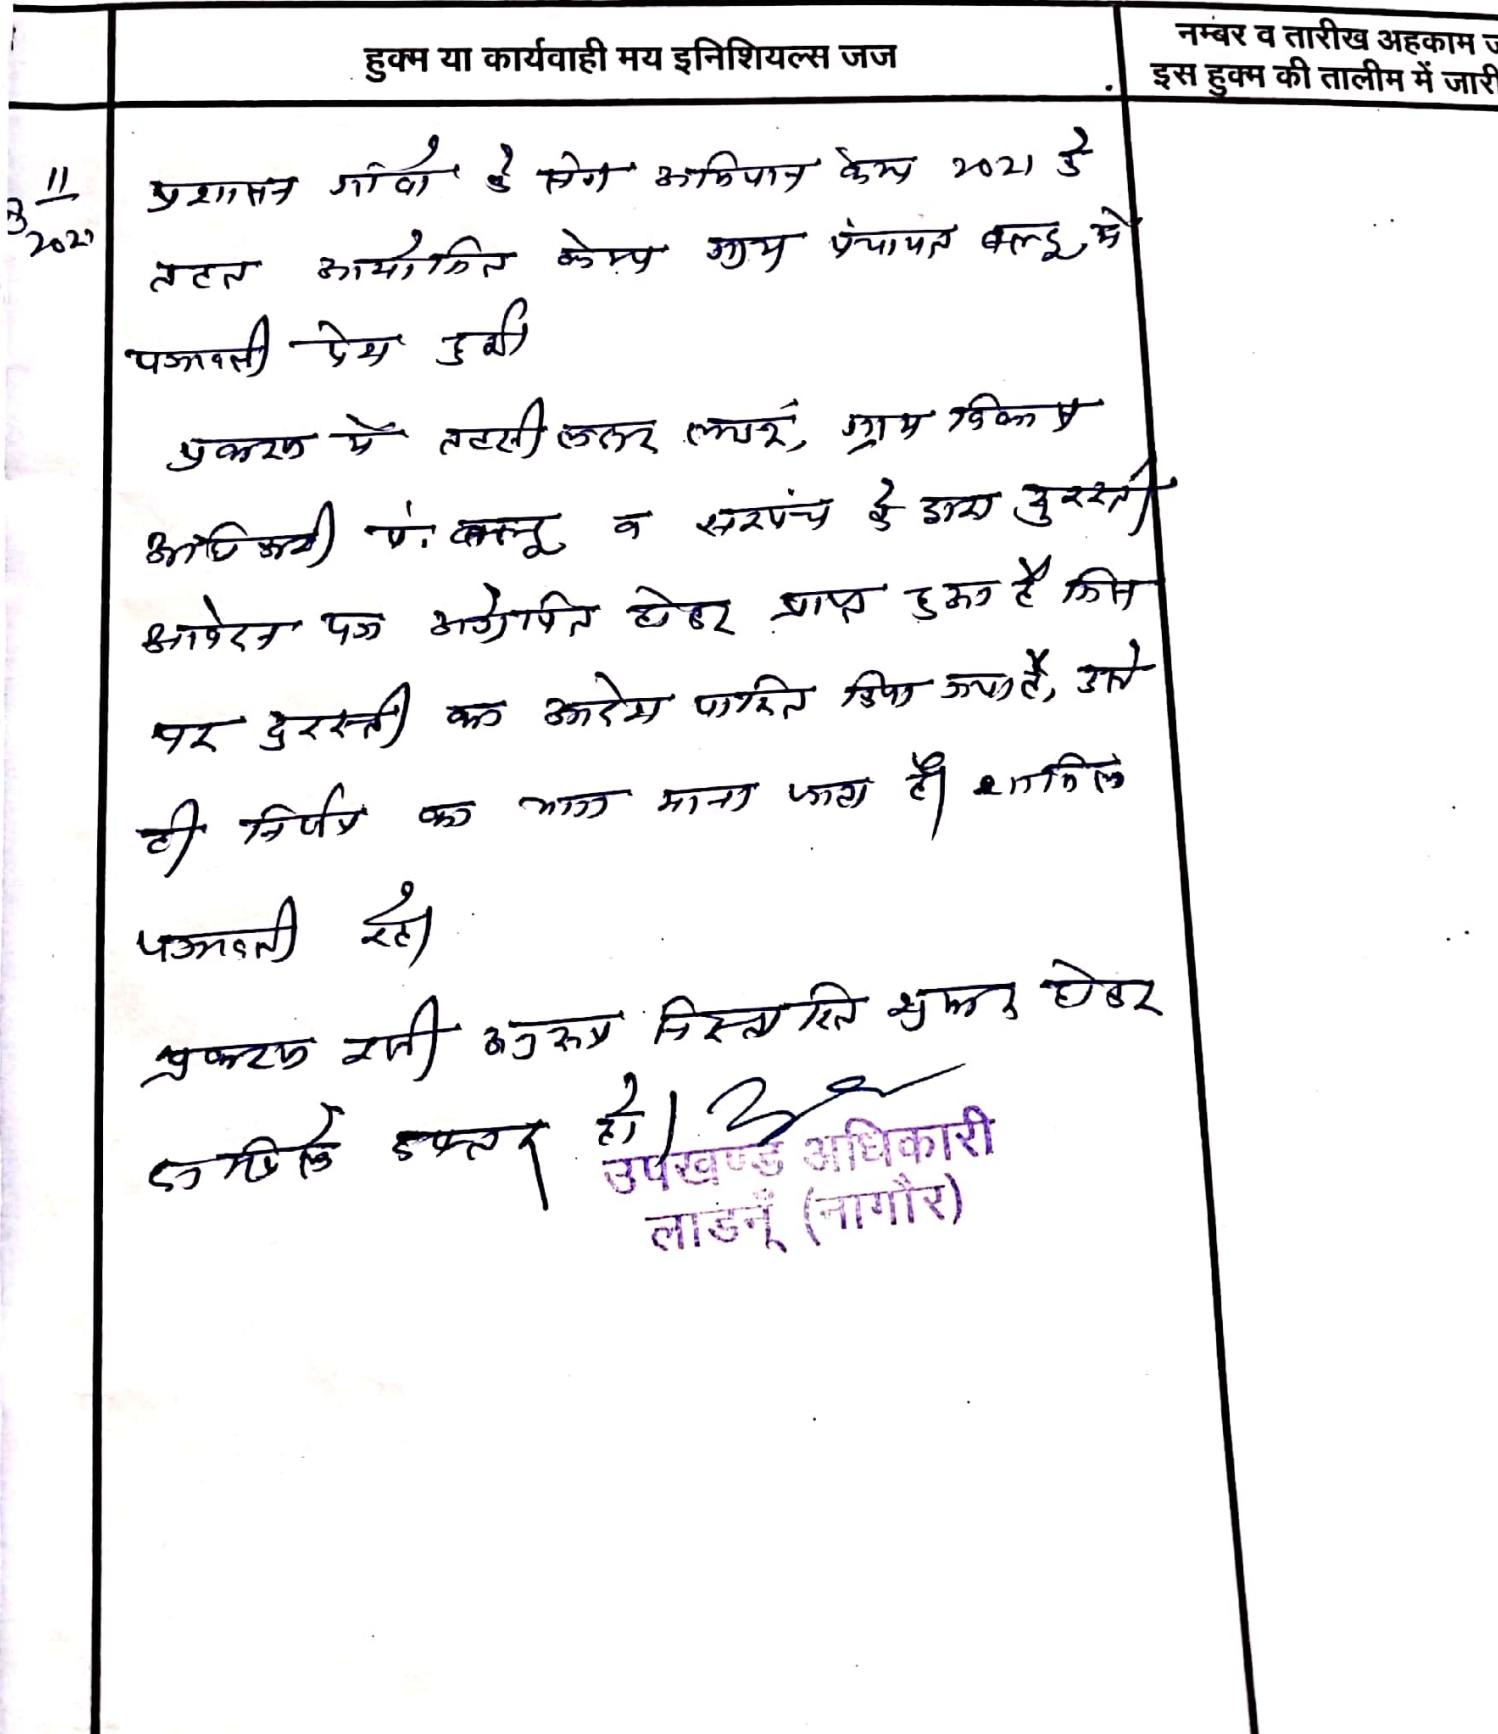 हुक्म या कार्यवाही मय इनिशियल्स जज
नम्बर व तारीख अहकाम
इस हुक्म की तालीम में जारी
11
2021
प्रशासन गाँवो के संग अभियान केम्प 2021 के
तहत आयोजित केम्प ग्राम पंचायत में
पत्रावली पेश हुयी
प्रकरण में तहसीलदार लाडनूं, ग्राम विकास
अधिकारी व सरपंच के द्वारा दुरस्ती
आवेदन पत्र अग्रेषित होकर प्राप्त हुआ है जिस
पर दुरस्ती का आदेश पारित किया गया है, उसे
ही निर्णय का भाग माना जाता है। शामिल
पत्रावली रहे।
प्रकरण अनुरूप निस्तारित शुमार होकर
दाखिल दफ्तर हो।
उपखण्ड अधिकारी
लाडनूँ (नागौर)